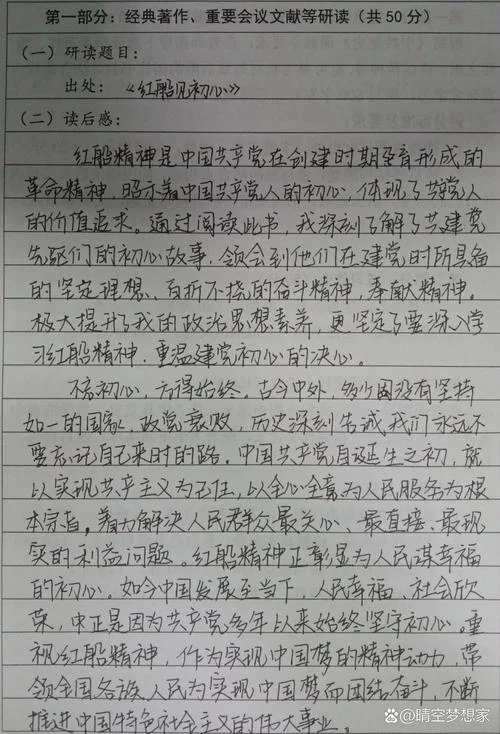 第一部分：经典著作、重要会议文献等研读（共50分）
（一）研读题目：
出处：《红船见初心》
（二）读后感：
红船精神是中国共产党在创建时期孕育形成的
革命精神，昭示着中国共产党人的初心，体现了共产党人
的价值追求。通过阅读此书，我深刻了解了共建党
先驱们的初心故事，领会到他们在建党时所具备
的坚定理想、百折不挠的奋斗精神，奉献精神。
极大提升了我的政治思想素养，更坚定了要深入学
习红船精神，重温建党初心的决心。
不忘初心，方得始终。古今中外，多少因没有坚持
如一的国家，政党衰败，历史深刻告诫我们永远不
要忘记自己来时的路。中国共产党自诞生之初，就
以实现共产主义为己任，以全心全意为人民服务为根
本宗旨，着力解决人民群众最关心、最直接、最现
实的利益问题。红船精神正彰显为人民谋幸福
的初心。如今中国发展至当下，人民幸福、社会欣
荣，中正是因为共产党多年以来始终坚守初心。重
视红船精神，作为实现中国梦的精神动力，带
领全国各族人民为实现中国梦而团结奋斗，不断
推进中国特色社会主义的伟大事业。
@晴空梦想家